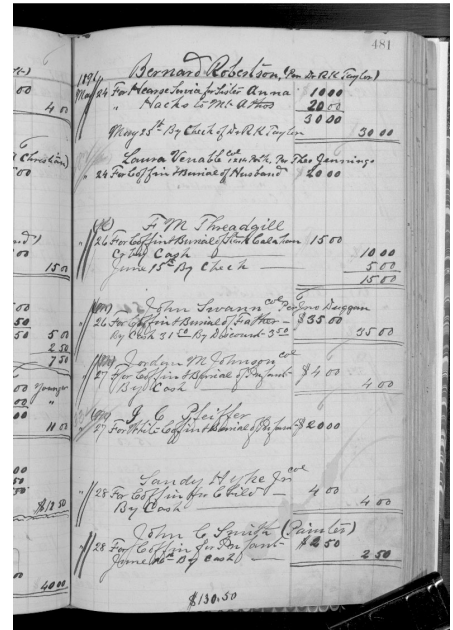 481
Bernard Robertson, (Per Dr R K Taylor)
1896
May 24 For Hearse Service for Sister Anna 10 00
" Hacks to Mt Athos 20 00
30 00
May 25th By Check of Dr R K Taylor 30 00
Laura Venable col 12th Per Theo Jennings
" 24 For Coffin & Burial of Husband 20 00
F. M. Threadgill
" 26 For Coffin & Burial of 15 00
By Cash 10 00
June 15th By Check 5 00
15 00
John Swann col Per Jno Duggan
" 26 For Coffin & Burial of Father $35 00
By Cash 31 50 By Discount 3 50 35 00
Jordan M Johnson col
" 27 For Coffin & Burial of Infant $4 00
By Cash 4 00
J. C. Pfeiffer
" 27 For White Coffin & Burial of Infant $20 00
Sandy Hyke Jr col
" 28 For Coffin for Child 4 00
By Cash 4 00
John C Smith (Painter)
" 28 For Coffin for Infant $2 50
June 16th By Cash 2 50
$130.50
Christian)
4 00
15 00
5 00
2 50
7 50
Younger
11 00
$12 50
40 00